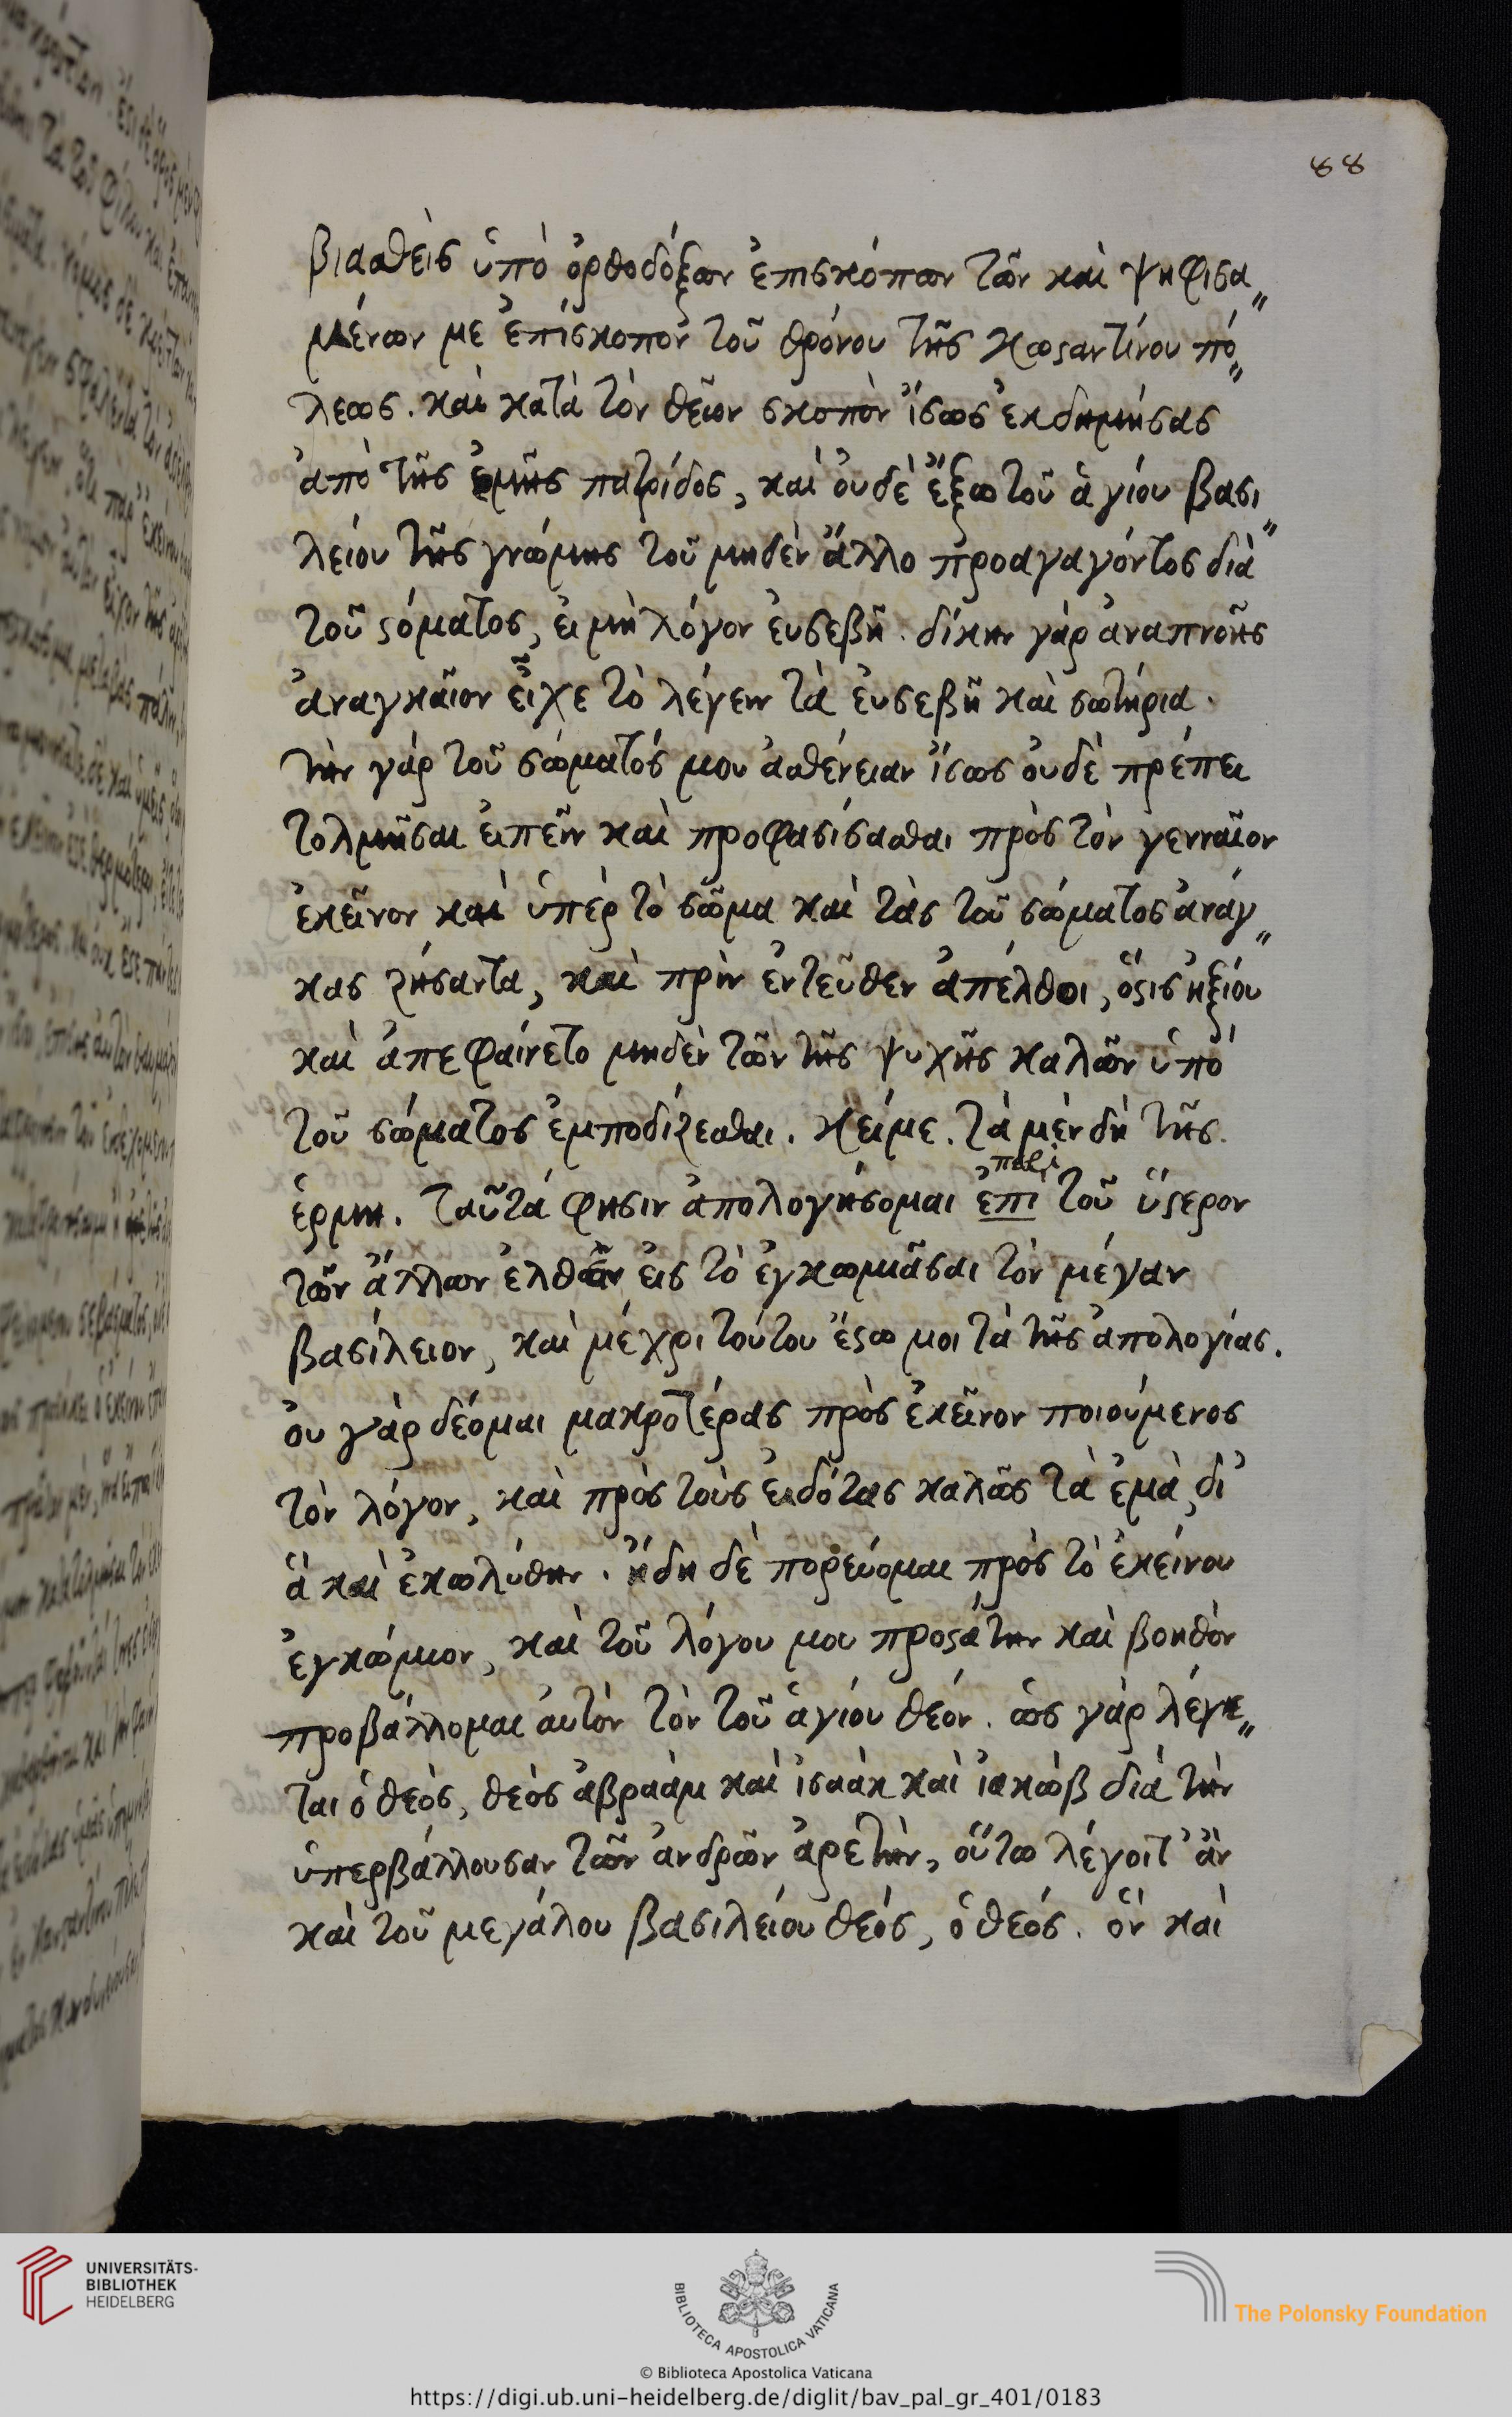 88
βιασθεὶς ὑπὸ ὀρθοδόξων ἐπισκόπων τῶν καὶ ψηφισα〃
μένων με ἐπίσκοπον τοῦ θρόνου τῆς κωϛαντίνου πό〃
λεως. καὶ κατὰ τὸν θεῖον σκοπὸν ἴσως ἐκδημήσας
ἀπὸ τῆς ἐμῆς πατρίδος, καὶ οὐδὲ ἔξω τοῦ ἁγίου βασι〃
λείου τῆς γνώμης τοῦ μηδὲν ἄλλο προαγαγόντος διὰ
τοῦ ϛόματος, εἰ μὴ λόγον εὐσεβῆ. δίκην γὰρ ἀναπνοῆς
ἀναγκαῖον εἶχε τὸ λέγειν τὰ εὐσεβῆ καὶ σωτήρια.
τὴν γὰρ τοῦ σώματός μου ἀσθένειαν ἴσως οὐδὲ πρέπει
τολμῆσαι εἰπεῖν καὶ προφασίσασθαι πρὸς τὸν γενναῖον
ἐκεῖνον καὶ ὑπὲρ τὸ σῶμα καὶ τὰς τοῦ σώματος ἀνάγ〃
κας ζήσαντα, καὶ πρὶν ἐντεῦθεν ἀπέλθοι, ὅϛις ἠξίου
καὶ ἀπεφαίνετο μηδὲν τῶν τῆς ψυχῆς καλῶν ὑπὸ
τοῦ σώματος ἐμποδίζεσθαι. κείμε. τὰ μὲν δὴ τῆς.
ἑρμη. ταῦτά φησιν ἀπολογήσομαι ἐπὶ τοῦ ὕϛερον
τῶν ἄλλων ἐλθεῖν εἰς τὸ ἐγκωμιᾶσαι τὸν μέγαν
βασίλειον, καὶ μέχρι τούτου ἔϛω μοι τὰ τῆς ἀπολογίας.
οὐ γὰρ δέομαι μακροτέρας πρὸς ἐκεῖνον ποιούμενος
τὸν λόγον, καὶ πρὸς τοὺς εἰδότας καλῶς τὰ ἐμὰ, δι᾽
ἃ καὶ ἐκωλύθην. ἤδη δὲ πορεύομαι πρὸς τὸ ἐκείνου
ἐγκώμιον, καὶ τοῦ λόγου μου προϛάτην καὶ βοηθὸν
προβάλλομαι αὐτὸν τὸν τοῦ ἁγίου θεόν. ὡς γὰρ λέγε〃
ται ὁ θεὸς, θεὸς ἀβραὰμ καὶ ἰσαὰκ καὶ ἰακὼβ διὰ τὴν
ὑπερβάλλουσαν τῶν ἀνδρῶν ἀρετὴν, οὕτω λέγοιτ᾽ ἂν
καὶ τοῦ μεγάλου βασιλείου θεὸς, ὁ θεός. ὃν καὶ
UNIVERSITÄTS-
BIBLIOTHEK
HEIDELBERG
BIBLIOTECA APOSTOLICA VATICANA
The Polonsky Foundation
© Biblioteca Apostolica Vaticana
https://digi.ub.uni-heidelberg.de/diglit/bav_pal_gr_401/0183